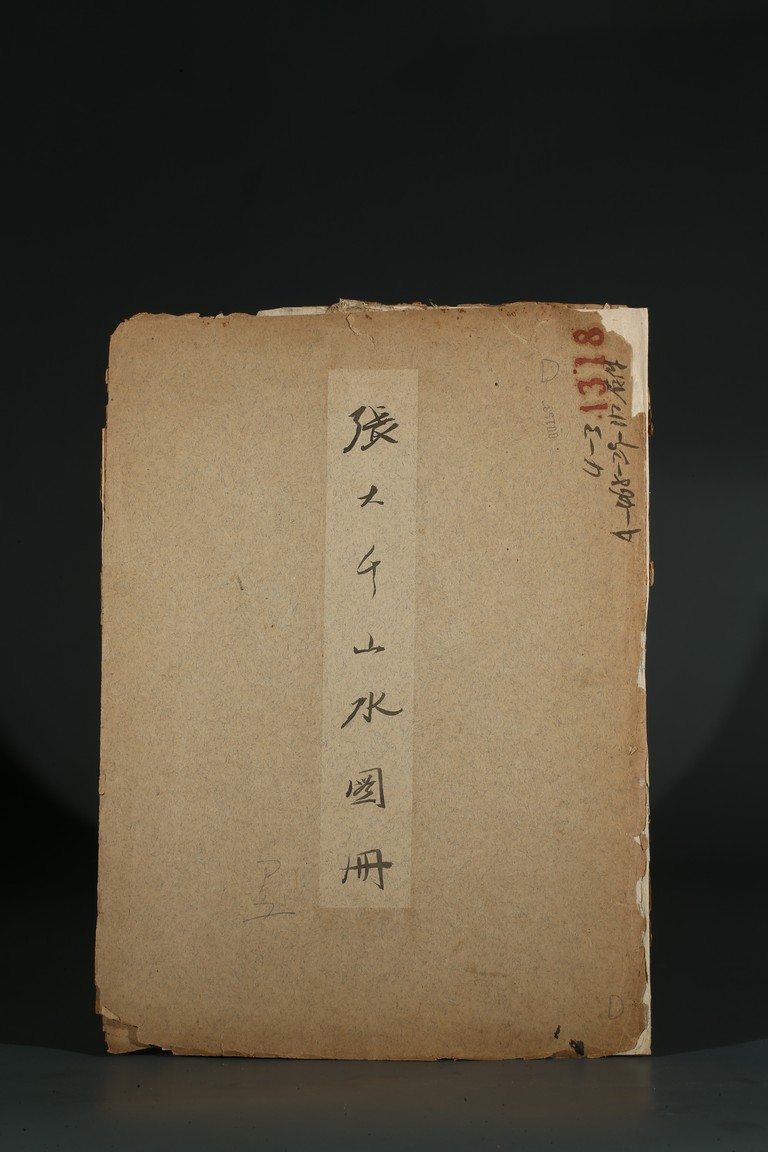 張大千山水圖冊
1318
4-3
D
D